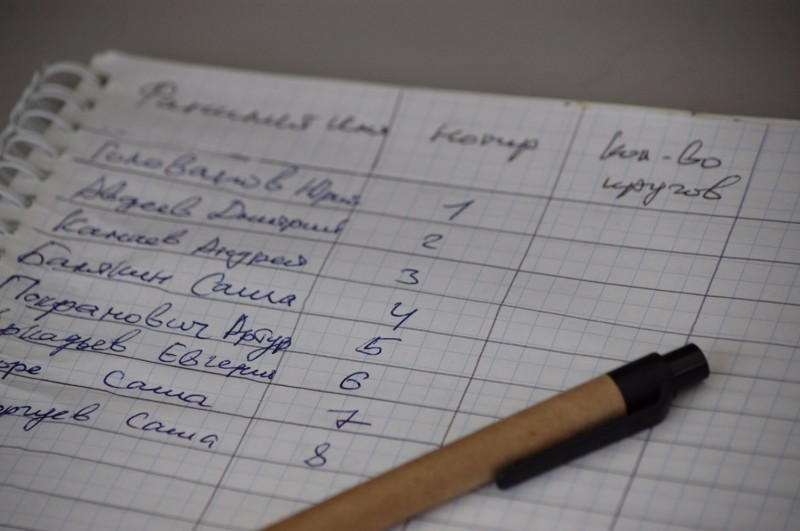 Фамилия Имя номер Кол-во
кругов
Голованов Юрий 1
Авдеев Дмитрий 2
Канаев Андрей 3
Балякин Саша 4
Покранович Артур 5
Евгений 6
Саша 7
Саша 8